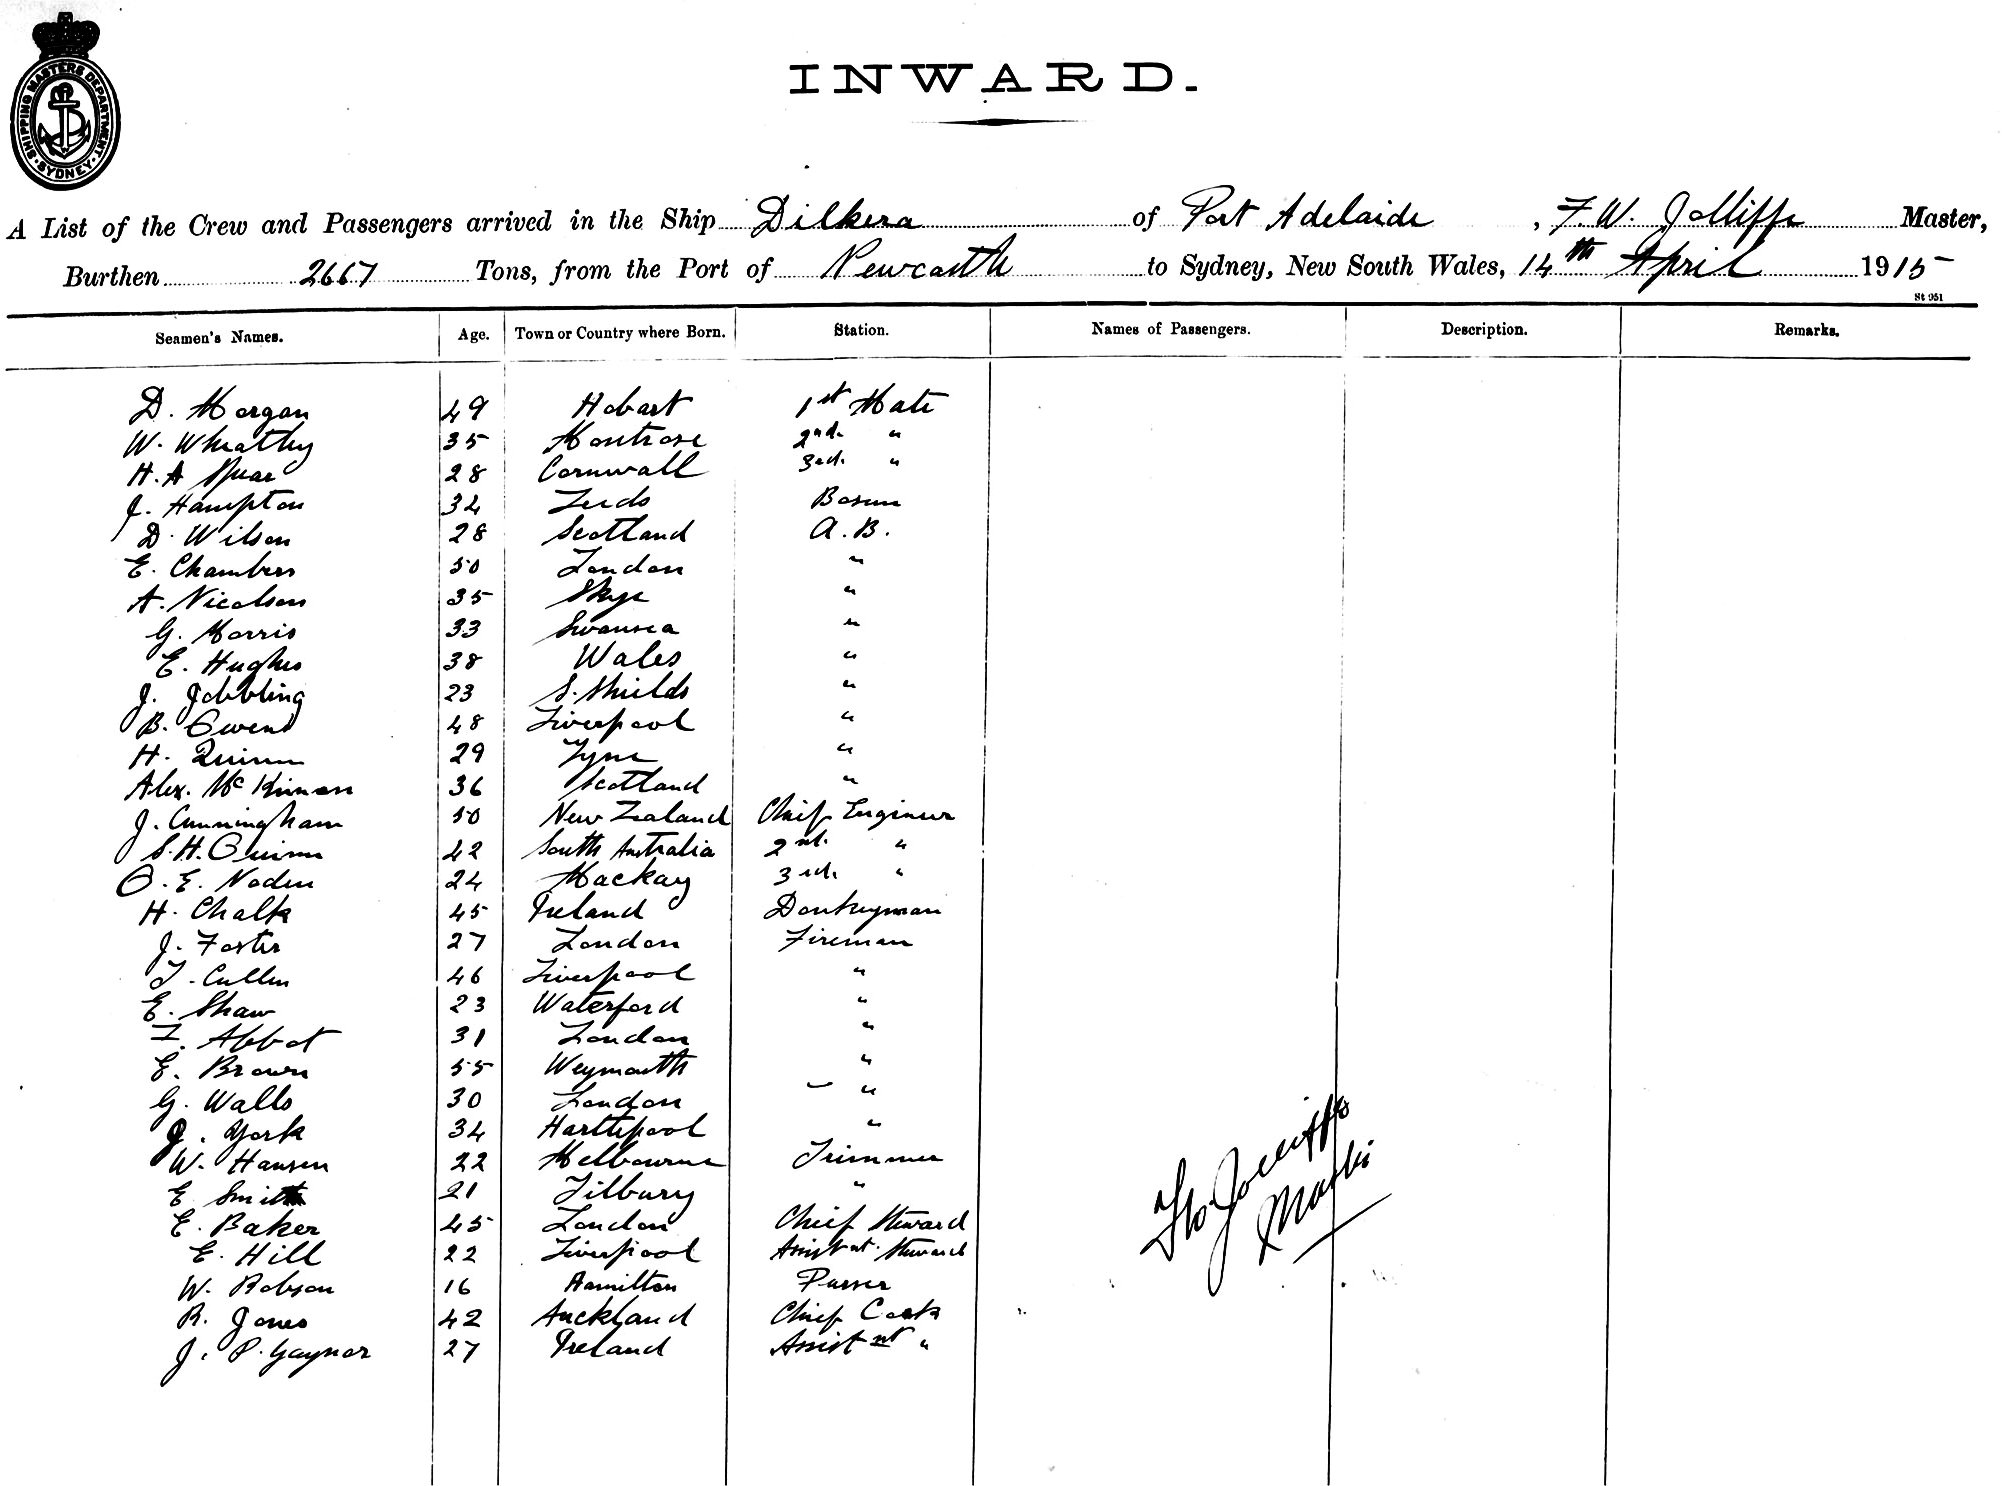 SHIPPING MASTERS DEPARTMENT · SYDNEY ·
INWARD.
A List of the Crew and Passengers arrived in the Ship Dilkera of Port Adelaide, F. W. Jolliffe Master,
Burthen 2667 Tons, from the Port of Newcastle to Sydney, New South Wales, 14th April 1915
St 951
Seamen's Names. Age. Town or Country where Born. Station. Names of Passengers. Description. Remarks.
D. Morgan 49 Hobart 1st Mate
W. Wheatley 35 Montrose 2nd. "
H. A 28 Cornwall 3rd. "
J. Hampton 34 Leeds Bosun
D. Wilson 28 Scotland A.B.
E. Chambers 50 London "
A. Nicolson 35 Skye "
G. Morris 33 Swansea "
E. Hughes 38 Wales "
J. Jobbling 23 S. Shields "
B. Owens 48 Liverpool "
H. Quinn 29 Tyne "
Alex. McKinnon 36 Scotland "
J. Cunningham 50 New Zealand Chief Engineer
S. H. Quinn 42 South Australia 2nd. "
O. E. Noden 24 Mackay 3rd. "
H. Chalk 45 Ireland Donkeyman
J. Foster 27 London Fireman
T. Cullen 46 Liverpool "
E. Shaw 23 Waterford "
F. Abbot 31 London "
E. Brown 55 Weymouth "
G. Walls 30 London — "
J. York 34 Hartlepool "
W. Hansen 22 Melbourne Trimmer
E Smith 21 Tilbury "
E. Baker 45 London Chief Steward
E. Hill 22 Liverpool Assistnt. Steward
W. Robson 16 Hamilton Purser
R. Jones 42 Auckland Chief Cook
J. P. Gaynor 27 Ireland Assistnt "
FW Jolliffe
Master